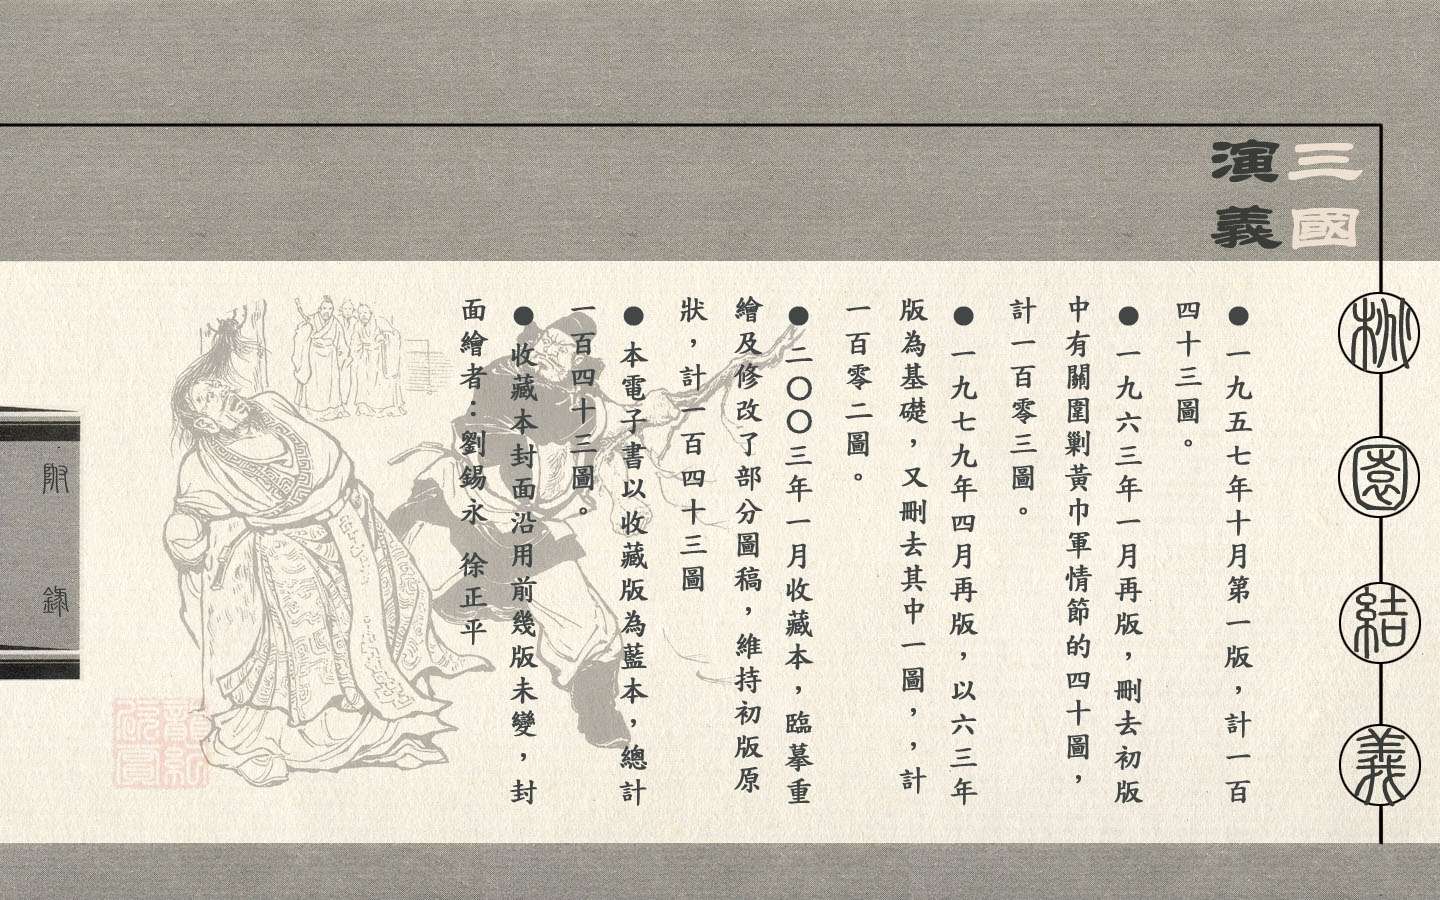 三國
演義
桃園結義
●一九五七年十月第一版，計一百
四十三圖。
●一九六三年一月再版，刪去初版
中有關圍剿黃巾軍情節的四十圖，
計一百零三圖。
●一九七九年四月再版，以六三年
版為基礎，又刪去其中一圖，，計
一百零二圖。
●二〇〇三年一月收藏本，臨摹重
繪及修改了部分圖稿，維持初版原
狀，計一百四十三圖
●本電子書以收藏版為藍本，總計
一百四十三圖。
●收藏本封面沿用前幾版未變，封
面繪者：劉錫永 徐正平
附錄